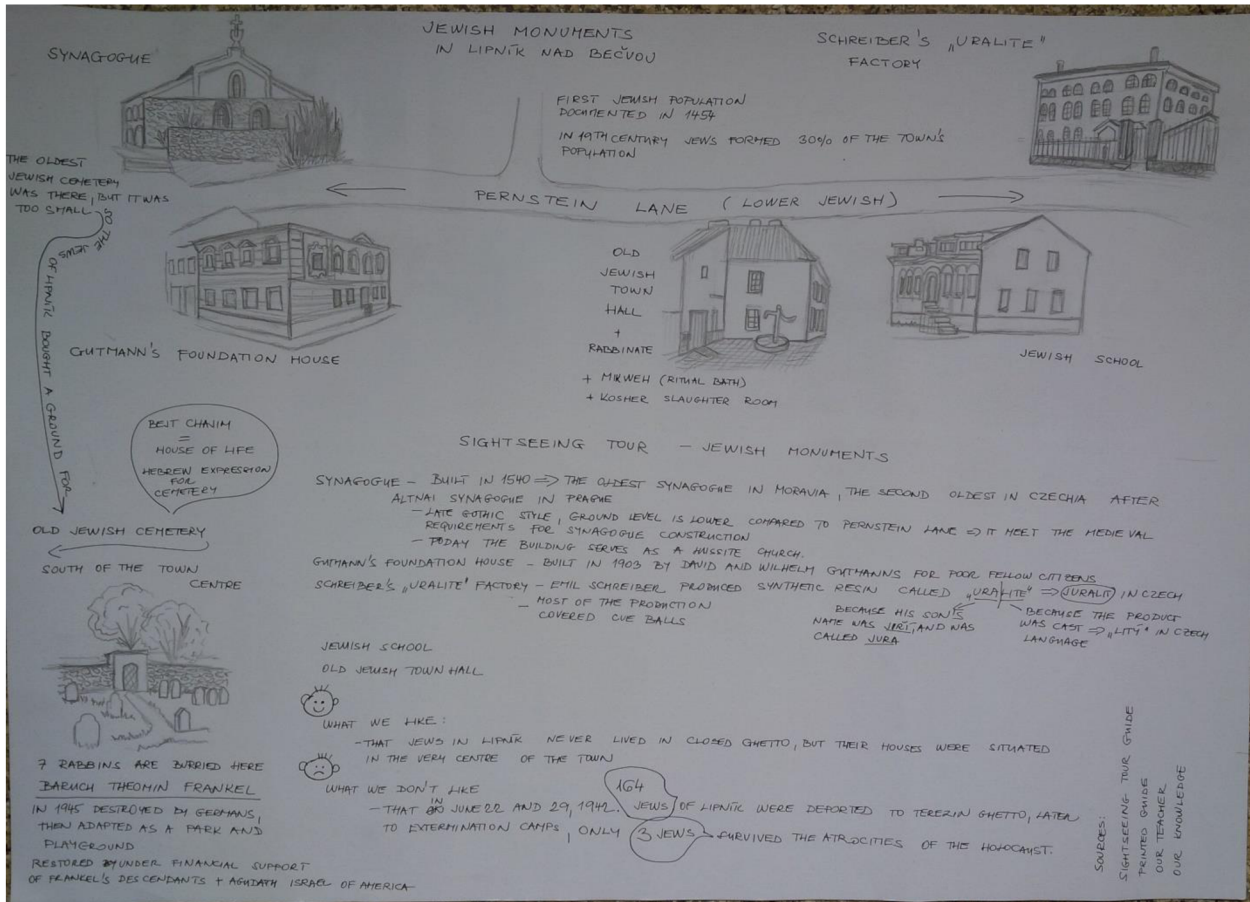 JEWISH MONUMENTS
IN LIPNÍK NAD BEČVOU
SYNAGOGUE
SCHREIBER'S „URALITE"
FACTORY
FIRST JEWISH POPULATION
DOCUMENTED IN 1454
IN 19TH CENTURY JEWS FORMED 30% OF THE TOWN'S
POPULATION
THE OLDEST
JEWISH CEMETERY
WAS THERE, BUT IT WAS
TOO SMALL
SO THE JEWS OF LIPNÍK BOUGHT A GROUND FOR
PERNSTEIN LANE (LOWER JEWISH)
GUTMANN'S FOUNDATION HOUSE
OLD
JEWISH
TOWN
HALL
+
RABBINATE
+ MIKWEH (RITUAL BATH)
+ KOSHER SLAUGHTER ROOM
JEWISH SCHOOL
BEIT CHAIM
=
HOUSE OF LIFE
HEBREW EXPRESSION
FOR
CEMETERY
OLD JEWISH CEMETERY
SOUTH OF THE TOWN
CENTRE
7 RABBINS ARE BURRIED HERE
BARUCH THEOMIN FRANKEL
IN 1945 DESTROYED BY GERMANS,
THEN ADAPTED AS A PARK AND
PLAYGROUND
RESTORED BY UNDER FINANCIAL SUPPORT
OF FRANKEL'S DESCENDANTS + AGUDATH ISRAEL OF AMERICA
SIGHTSEEING TOUR – JEWISH MONUMENTS
SYNAGOGUE – BUILT IN 1540 => THE OLDEST SYNAGOGUE IN MORAVIA, THE SECOND OLDEST IN CZECHIA AFTER
ALTNAI SYNAGOGUE IN PRAGUE
– LATE GOTHIC STYLE, GROUND LEVEL IS LOWER COMPARED TO PERNSTEIN LANE => IT MEET THE MEDIEVAL
REQUIREMENTS FOR SYNAGOGUE CONSTRUCTION
– TODAY THE BUILDING SERVES AS A HUSSITE CHURCH.
GUTMANN'S FOUNDATION HOUSE – BUILT IN 1903 BY DAVID AND WILHELM GUTMANNS FOR POOR FELLOW CITIZENS
SCHREIBER'S „URALITE" FACTORY – EMIL SCHREIBER PRODUCED SYNTHETIC RESIN CALLED „URALITE" => JURALIT IN CZECH
– MOST OF THE PRODUCTION
COVERED CUE BALLS
BECAUSE HIS SON'S
NAME WAS JIŘÍ, AND WAS
CALLED JURA
BECAUSE THE PRODUCT
WAS CAST => „LITÝ" IN CZECH
LANGUAGE
JEWISH SCHOOL
OLD JEWISH TOWN HALL
WHAT WE LIKE:
– THAT JEWS IN LIPNÍK NEVER LIVED IN CLOSED GHETTO, BUT THEIR HOUSES WERE SITUATED
IN THE VERY CENTRE OF THE TOWN
WHAT WE DON'T LIKE
– THAT IN JUNE 22 AND 29, 1942. 164 JEWS OF LIPNÍK WERE DEPORTED TO TEREZIN GHETTO, LATER
TO EXTERMINATION CAMPS, ONLY 3 JEWS SURVIVED THE ATROCITIES OF THE HOLOCAUST.
SOURCES:
SIGHTSEEING TOUR GUIDE
PRINTED GUIDE
OUR TEACHER
OUR KNOWLEDGE